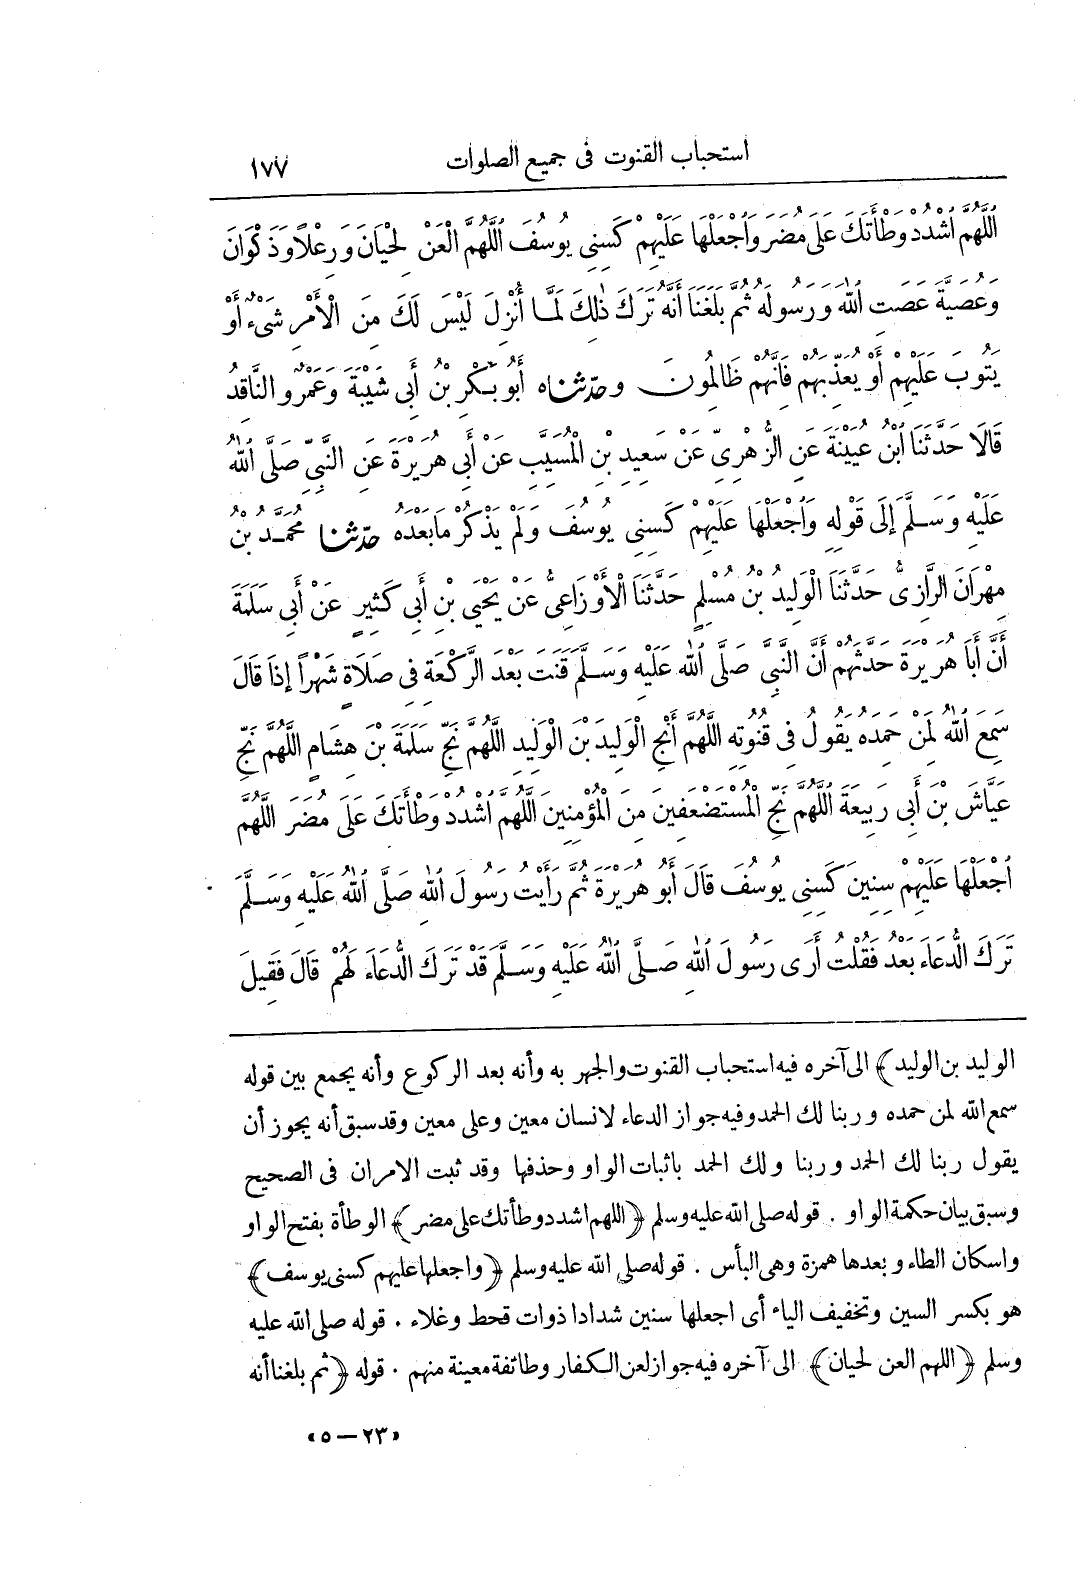 استحباب القنوت فى جميع الصلوات ١٧٧
اللَّهُمَّ اشْدُدْ وَطْأَتَكَ عَلَى مُضَرَ وَاجْعَلْهَا عَلَيْهِمْ كَسِنِى يُوسُفَ اللَّهُمَّ الْعَنْ لِحْيَانَ وَرِعْلًا وَذَكْوَانَ
وَعُصَيَّةَ عَصَتِ اللهَ وَرَسُولَهُ ثُمَّ بَلَغَنَا أَنَّهُ تَرَكَ ذٰلِكَ لَمَّا أُنْزِلَ لَيْسَ لَكَ مِنَ الْأَمْرِ شَىْءٌ أَوْ
يَتُوبَ عَلَيْهِمْ أَوْ يُعَذِّبَهُمْ فَإِنَّهُمْ ظَالِمُونَ وحدّثناه أَبُو بَكْرِ بْنُ أَبِى شَيْبَةَ وَعَمْرٌو النَّاقِدُ
قَالَا حَدَّثَنَا ابْنُ عُيَيْنَةَ عَنِ الزُّهْرِىِّ عَنْ سَعِيدِ بْنِ الْمُسَيَّبِ عَنْ أَبِى هُرَيْرَةَ عَنِ النَّبِىِّ صَلَّى اللهُ
عَلَيْهِ وَسَلَّمَ إِلَى قَوْلِهِ وَاجْعَلْهَا عَلَيْهِمْ كَسِنِى يُوسُفَ وَلَمْ يَذْكُرْ مَا بَعْدَهُ حدّثنا مُحَمَّدُ بْنُ
مِهْرَانَ الرَّازِىُّ حَدَّثَنَا الْوَلِيدُ بْنُ مُسْلِمٍ حَدَّثَنَا الْأَوْزَاعِىُّ عَنْ يَحْيَى بْنِ أَبِى كَثِيرٍ عَنْ أَبِى سَلَمَةَ
أَنَّ أَبَا هُرَيْرَةَ حَدَّثَهُمْ أَنَّ النَّبِىَّ صَلَّى اللهُ عَلَيْهِ وَسَلَّمَ قَنَتَ بَعْدَ الرَّكْعَةِ فِى صَلَاةٍ شَهْرًا إِذَا قَالَ
سَمِعَ اللهُ لِمَنْ حَمِدَهُ يَقُولُ فِى قُنُوتِهِ اللَّهُمَّ أَنْجِ الْوَلِيدَ بْنَ الْوَلِيدِ اللَّهُمَّ نَجِّ سَلَمَةَ بْنَ هِشَامٍ اللَّهُمَّ نَجِّ
عَيَّاشَ بْنَ أَبِى رَبِيعَةَ اللَّهُمَّ نَجِّ الْمُسْتَضْعَفِينَ مِنَ الْمُؤْمِنِينَ اللَّهُمَّ اشْدُدْ وَطْأَتَكَ عَلَى مُضَرَ اللَّهُمَّ
اجْعَلْهَا عَلَيْهِمْ سِنِينَ كَسِنِى يُوسُفَ قَالَ أَبُو هُرَيْرَةَ ثُمَّ رَأَيْتُ رَسُولَ اللهِ صَلَّى اللهُ عَلَيْهِ وَسَلَّمَ
تَرَكَ الدُّعَاءَ بَعْدُ فَقُلْتُ أُرَى رَسُولَ اللهِ صَلَّى اللهُ عَلَيْهِ وَسَلَّمَ قَدْ تَرَكَ الدُّعَاءَ لَهُمْ قَالَ فَقِيلَ
الوليد بن الوليد﴾ الى آخره فيه استحباب القنوت والجهر به وأنه بعد الركوع وأنه يجمع بين قوله
سمع الله لمن حمده وربنا لك الحمد وفيه جواز الدعاء لانسان معين وعلى معين وقد سبق أنه يجوز أن
يقول ربنا لك الحمد وربنا ولك الحمد باثبات الواو وحذفها وقد ثبت الامران فى الصحيح
وسبق بيان حكمة الواو . قوله صلى الله عليه وسلم ﴿اللهم اشدد وطأتك على مضر﴾ الوطأة بفتح الواو
واسكان الطاء وبعدها همزة وهى البأس . قوله صلى الله عليه وسلم ﴿واجعلها عليهم كسنى يوسف﴾
هو بكسر السين وتخفيف الياء أى اجعلها سنين شدادا ذوات قحط وغلاء . قوله صلى الله عليه
وسلم ﴿اللهم العن لحيان﴾ الى آخره فيه جواز لعن الكفار وطائفة معينة منهم . قوله ﴿ثم بلغنا أنه
«٢٣ — ٥»